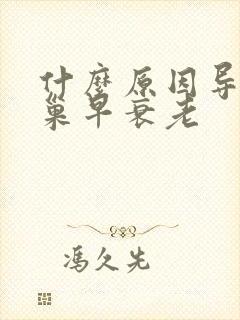 什麼原因导
巢早衰老
冯久先